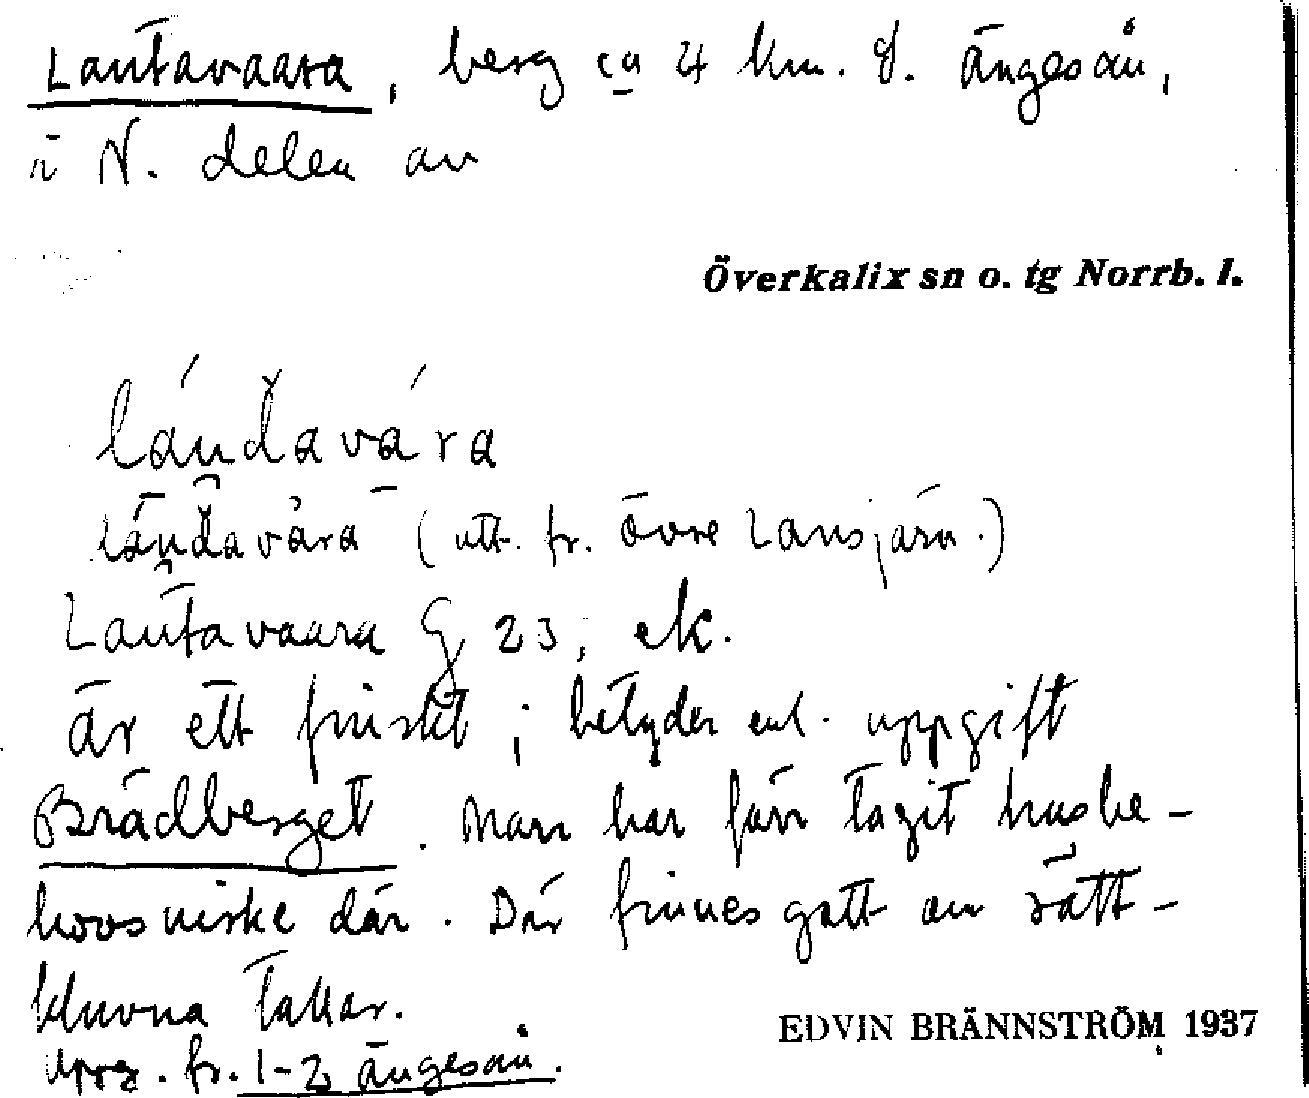 Lantavaara, berg ca 4 km. Ö. Ängesån,
i N. delen av
Överkalix sn o. tg Norrb. l.
lánd̆avára
(utt. fr. Övre Lansjärv.)
Lantavaara G 23, ek.
är ett finskt; betyder enl. uppgift
Brädberget. Man har förr tagit husbe-
hovsvirke där. Där finnes gott om rätt-
kluvna tallar.
Uppg. fr. 1-2 Ängesån.
EDVIN BRÄNNSTRÖM 1937